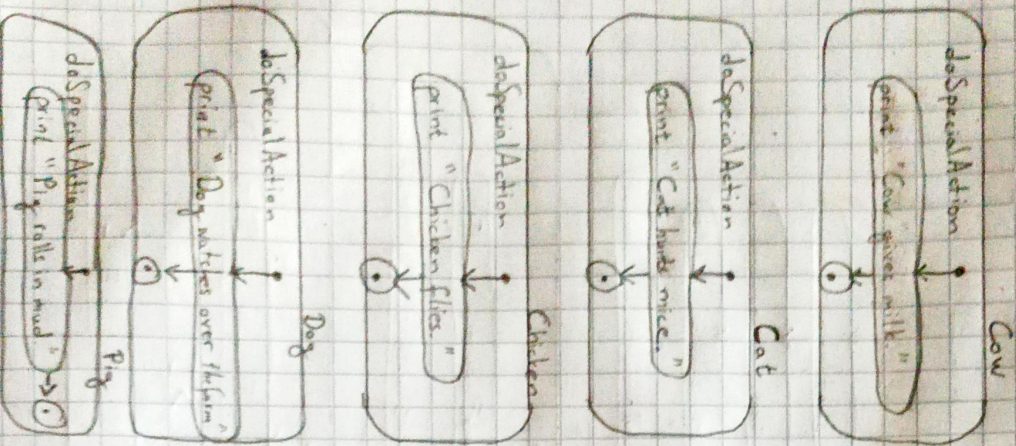 Cow
doSpecialAction
print "Cow gives milk."
Cat
doSpecialAction
print "Cat hunts mice."
Chicken
doSpecialAction
print "Chicken flies."
Dog
doSpecialAction
print "Dog watches over the farm"
Pig
doSpecialAction
print "Pig rolls in mud"